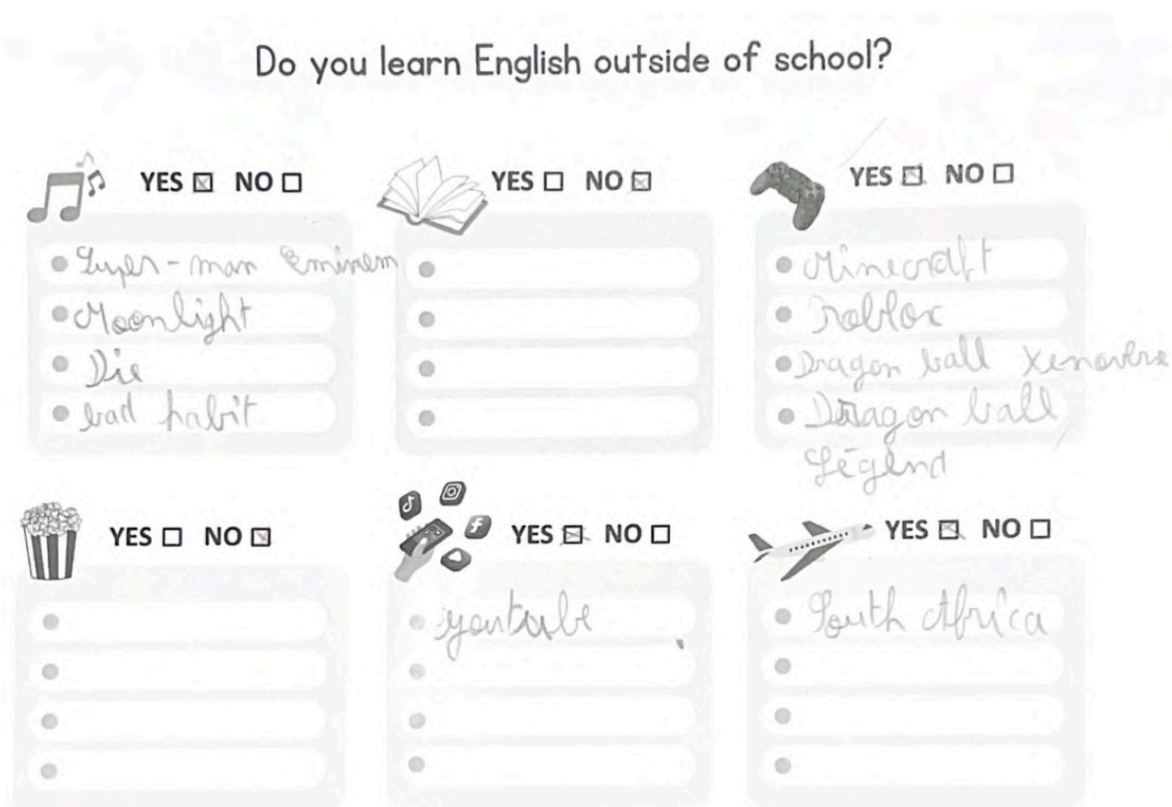 Do you learn English outside of school?
YES ☒ NO ☐
Super-man Eminem
Moonlight
Die
bad habit
YES ☐ NO ☒
YES ☒ NO ☐
Minecraft
roblox
Dragon ball Xenoverse
Dragon ball
Légend
YES ☐ NO ☒
YES ☒ NO ☐
youtube
YES ☒ NO ☐
South Africa